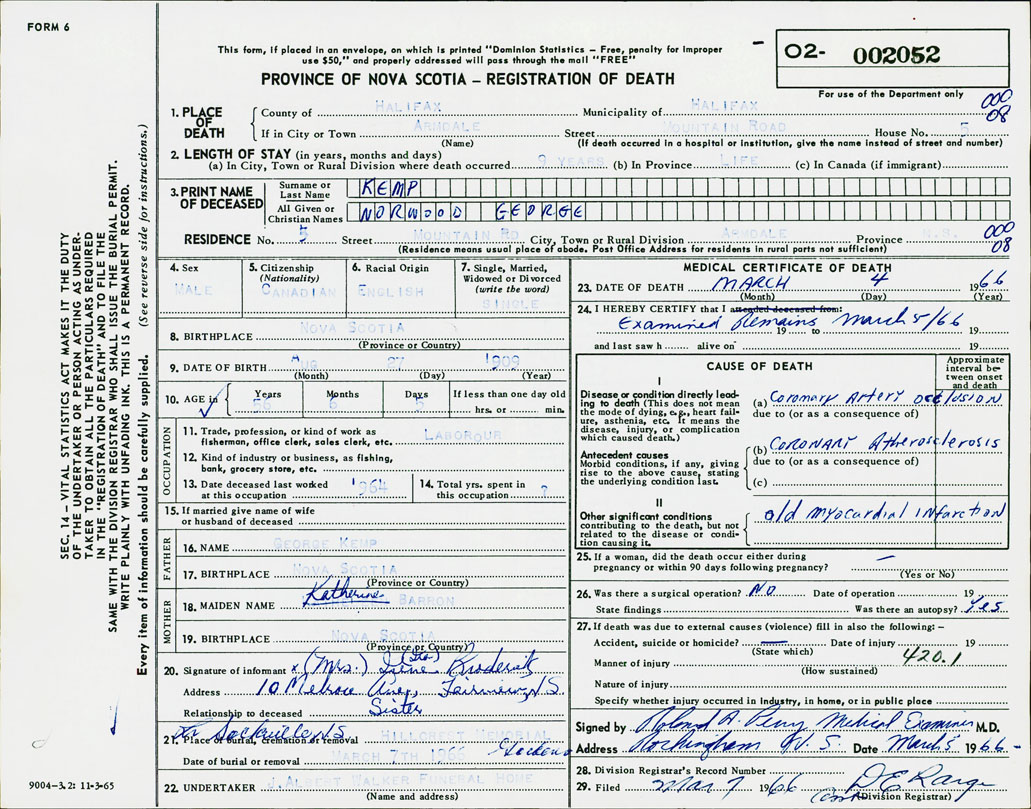 FORM 6
This form, if placed in an envelope, on which is printed "Dominion Statistics – Free, penalty for improper
use $50," and properly addressed will pass through the mail "FREE"
PROVINCE OF NOVA SCOTIA – REGISTRATION OF DEATH
O2- 002052
For use of the Department only
000
08
1. PLACE OF DEATH
County of HALIFAX Municipality of HALIFAX
If in City or Town ARMDALE Street MOUNTAIN ROAD House No. 5
(Name) (If death occurred in a hospital or institution, give the name instead of street and number)
2. LENGTH OF STAY (in years, months and days)
(a) In City, Town or Rural Division where death occurred 9 YEARS (b) In Province LIFE (c) In Canada (if immigrant)
3. PRINT NAME OF DECEASED
Surname or Last Name KEMP
All Given or Christian Names NORWOOD GEORGE
RESIDENCE No. 5 Street MOUNTAIN RD City, Town or Rural Division ARMDALE Province N.S.
(Residence means usual place of abode. Post Office Address for residents in rural parts not sufficient)
000
08
4. Sex
MALE
5. Citizenship
(Nationality)
CANADIAN
6. Racial Origin
ENGLISH
7. Single, Married,
Widowed or Divorced
(write the word)
SINGLE
8. BIRTHPLACE NOVA SCOTIA
(Province or Country)
9. DATE OF BIRTH AUG 27 1909
(Month) (Day) (Year)
10. AGE in Years Months Days If less than one day old
56 6 5 hrs. or min.
OCCUPATION
11. Trade, profession, or kind of work as
fisherman, office clerk, sales clerk, etc. LABOROUR
12. Kind of industry or business, as fishing,
bank, grocery store, etc.
13. Date deceased last worked
at this occupation 1964
14. Total yrs. spent in
this occupation ?
15. If married give name of wife
or husband of deceased
FATHER
16. NAME GEORGE KEMP
17. BIRTHPLACE NOVA SCOTIA
(Province or Country)
MOTHER
18. MAIDEN NAME Katherine BARRON
19. BIRTHPLACE NOVA SCOTIA
(Province or Country)
20. Signature of informant x (Mrs.) Irene Broderick
Address 10 Melrose Ave., Fairview N.S.
Relationship to deceased Sister
Sackville N S
21. Place of burial, cremation or removal HILLCREST MEMORIAL
Gardens
Date of burial or removal MARCH 7TH 1966
22. UNDERTAKER J. ALBERT WALKER FUNERAL HOME
(Name and address)
MEDICAL CERTIFICATE OF DEATH
23. DATE OF DEATH MARCH 4 1966
(Month) (Day) (Year)
24. I HEREBY CERTIFY that I attended deceased from:
Examined Remains March 5/66
19 to 19
and last saw h alive on 19
CAUSE OF DEATH
Approximate
interval be-
tween onset
and death
I
Disease or condition directly lead-
ing to death (This does not mean
the mode of dying, e.g., heart fail-
ure, asthenia, etc. It means the
disease, injury, or complication
which caused death.)
(a) Coronary Artery occlusion
due to (or as a consequence of)
Antecedent causes
Morbid conditions, if any, giving
rise to the above cause, stating
the underlying condition last.
(b) CORONARY Atherosclerosis
due to (or as a consequence of)
(c)
II
Other significant conditions
contributing to the death, but not
related to the disease or condi-
tion causing it.
old myocardial infarction
25. If a woman, did the death occur either during
pregnancy or within 90 days following pregnancy? —
(Yes or No)
26. Was there a surgical operation? NO Date of operation 19
State findings Was there an autopsy? Yes
27. If death was due to external causes (violence) fill in also the following:–
Accident, suicide or homicide? — Date of injury 19
(State which)
420.1
Manner of injury
(How sustained)
Nature of injury
Specify whether injury occurred in industry, in home, or in public place
Signed by Roland A. Perry Medical Examiner M.D.
Address Rockingham N. S. Date March 5 1966
28. Division Registrar's Record Number
29. Filed Mar 7 1966
(Division Registrar)
SEC. 14 – VITAL STATISTICS ACT MAKES IT THE DUTY
OF THE UNDERTAKER OR PERSON ACTING AS UNDER-
TAKER TO OBTAIN ALL THE PARTICULARS REQUIRED
IN THE "REGISTRATION OF DEATH" AND TO FILE THE
SAME WITH THE DIVISION REGISTRAR WHO SHALL ISSUE THE BURIAL PERMIT.
WRITE PLAINLY WITH UNFADING INK. THIS IS A PERMANENT RECORD.
Every item of information should be carefully supplied. (See reverse side for instructions.)
9004–3.2: 11-3-65